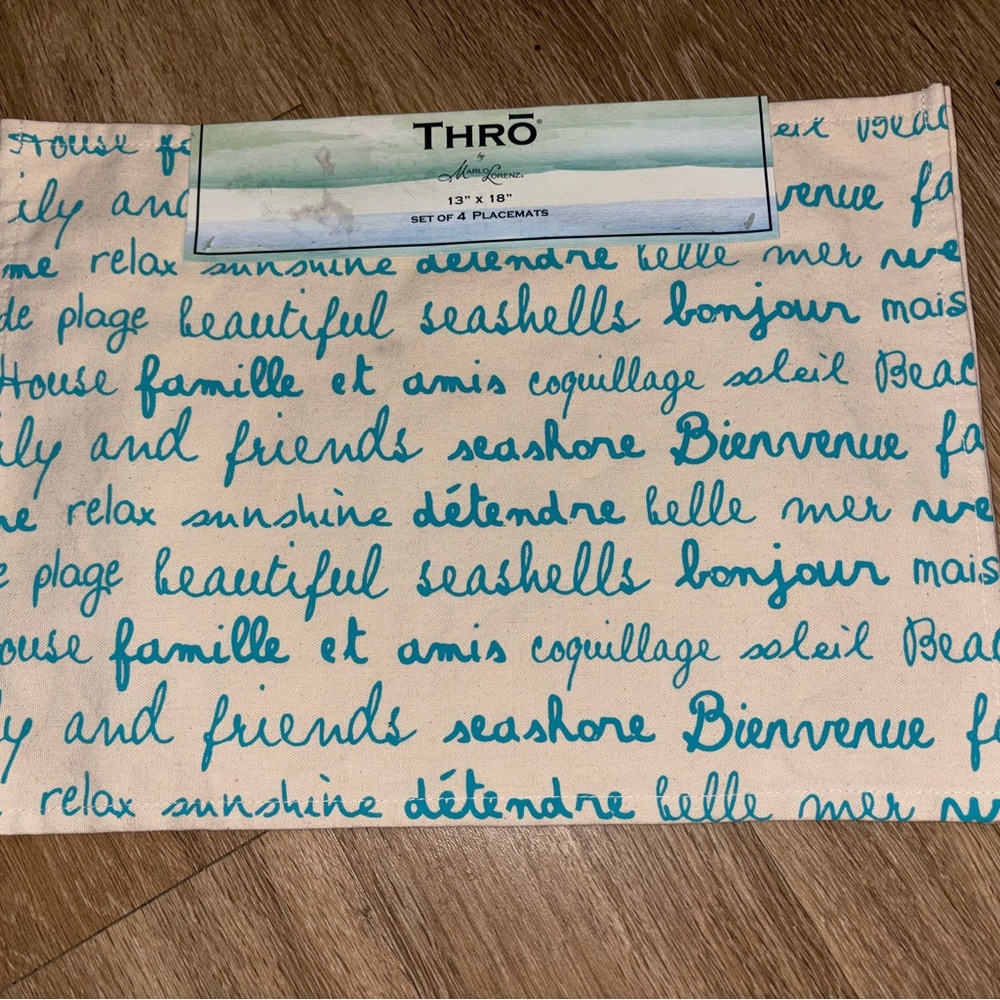 THRŌ®
by
MARLO LORENZ®
13" X 18"
SET OF 4 PLACEMATS
House
ily and venue fa
me relax sunshine détendre belle mer we
de plage beautiful seashells bonjour mais
House famille et amis coquillage soleil Beac
ily and friends seashore Bienvenue fa
relax sunshine détendre belle mer we
plage beautiful seashells bonjour mais
ouse famille et amis coquillage soleil Beac
ly and friends seashore Bienvenue f
relax sunshine détendre belle mer